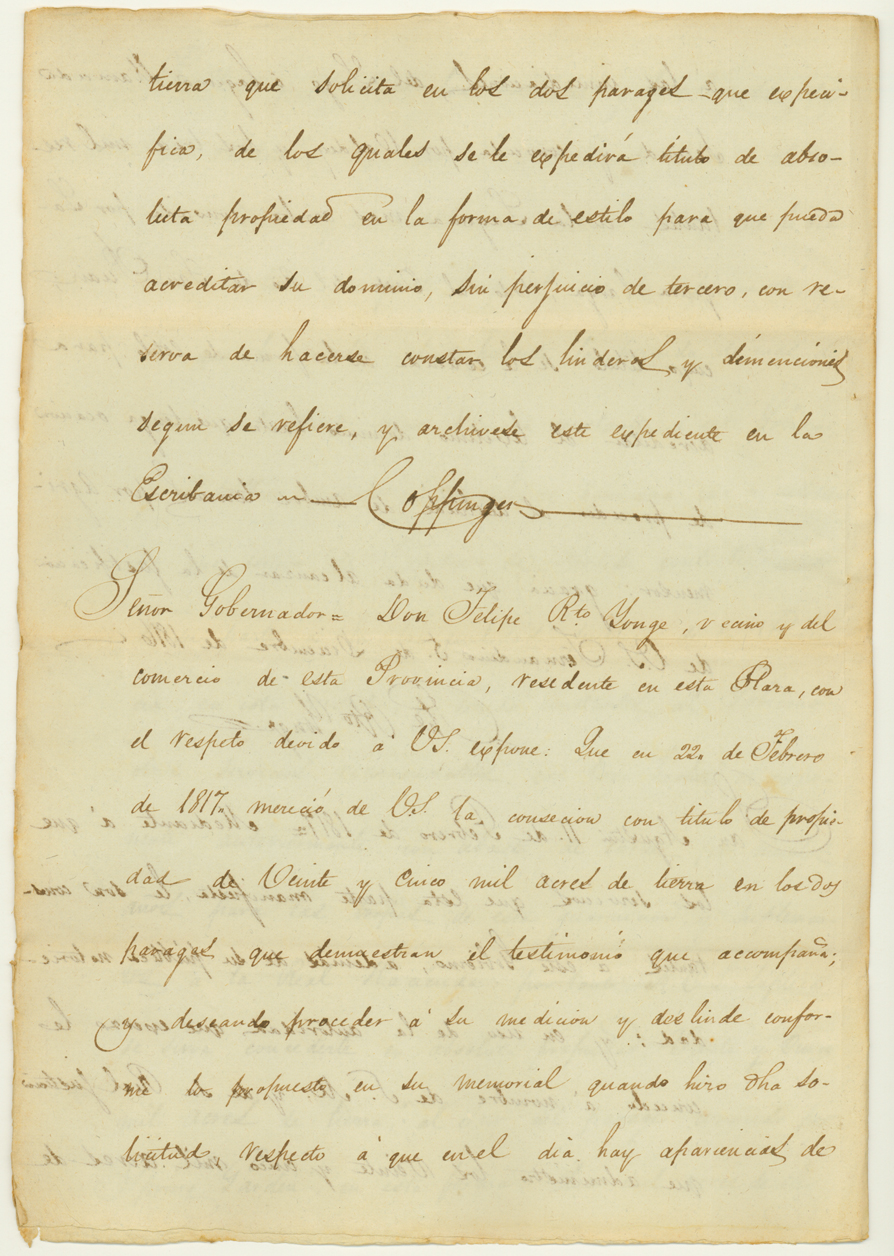 tierra que solicita en los dos parages que expeci-
fica, de los quales se le expedirá titulo de abso-
luta propiedad en la forma de estilo para que pueda
acreditar su dominio, sin perjuicio de tercero, con re-
serva de hacerse constar los linderos, y dimenciones
segun se refiere, y archivese este expediente en la
Escribania — Coppinger
Señor Gobernador = Don Felipe Rto Yonge, vecino y del
comercio de esta Provincia, residente en esta Plaza, con
el respeto devido á VS. expone: Que en 22 de Febrero
de 1817 mereció de VS. la consecion con titulo de propie-
dad de Veinte y Cinco mil acres de tierra en los dos
parages que demuestran el testimonio que accompaña;
y deseando proceder á su medicion y deslinde confor-
me lo propuesto en su memorial quando hizo dha so-
licitud, respecto á que en el dia hay apariencias de